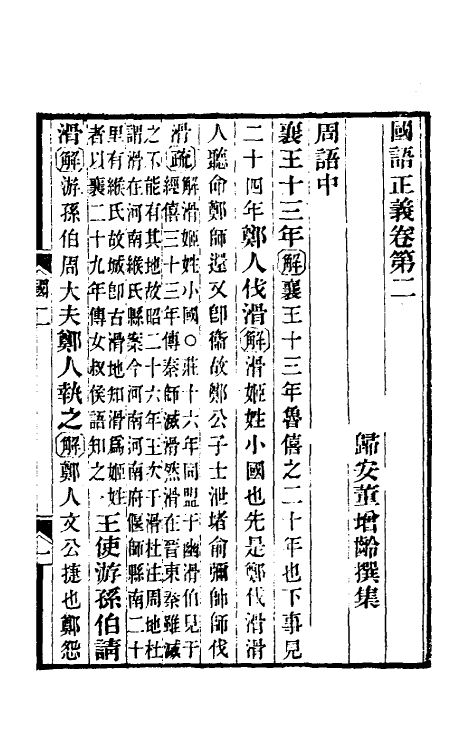 國語正義卷第二
歸安董增齡撰集
周語中
襄王十三年解襄王十三年魯僖之二十年也下事見
二十四年鄭人伐滑解滑姬姓小國也先是鄭伐滑滑
人聽命鄭師還又卽衞故鄭公子士泄堵俞彌帥師伐
滑疏解滑姬姓小國○莊十六年同盟于幽滑伯見于
經僖三十三年傳秦師滅滑然滑在晉東秦雖滅
之不能有其地故昭二十六年王次于滑杜注周地杜
謂滑在河南緱氏縣案今河南河南府偃師縣南二十
里有緱氏故城卽古滑地知滑爲姬姓
者以襄二十九年傳女叔侯語知之
王使游孫伯請
滑解游孫伯周大夫鄭人執之解鄭人文公捷也鄭怨
國二
一